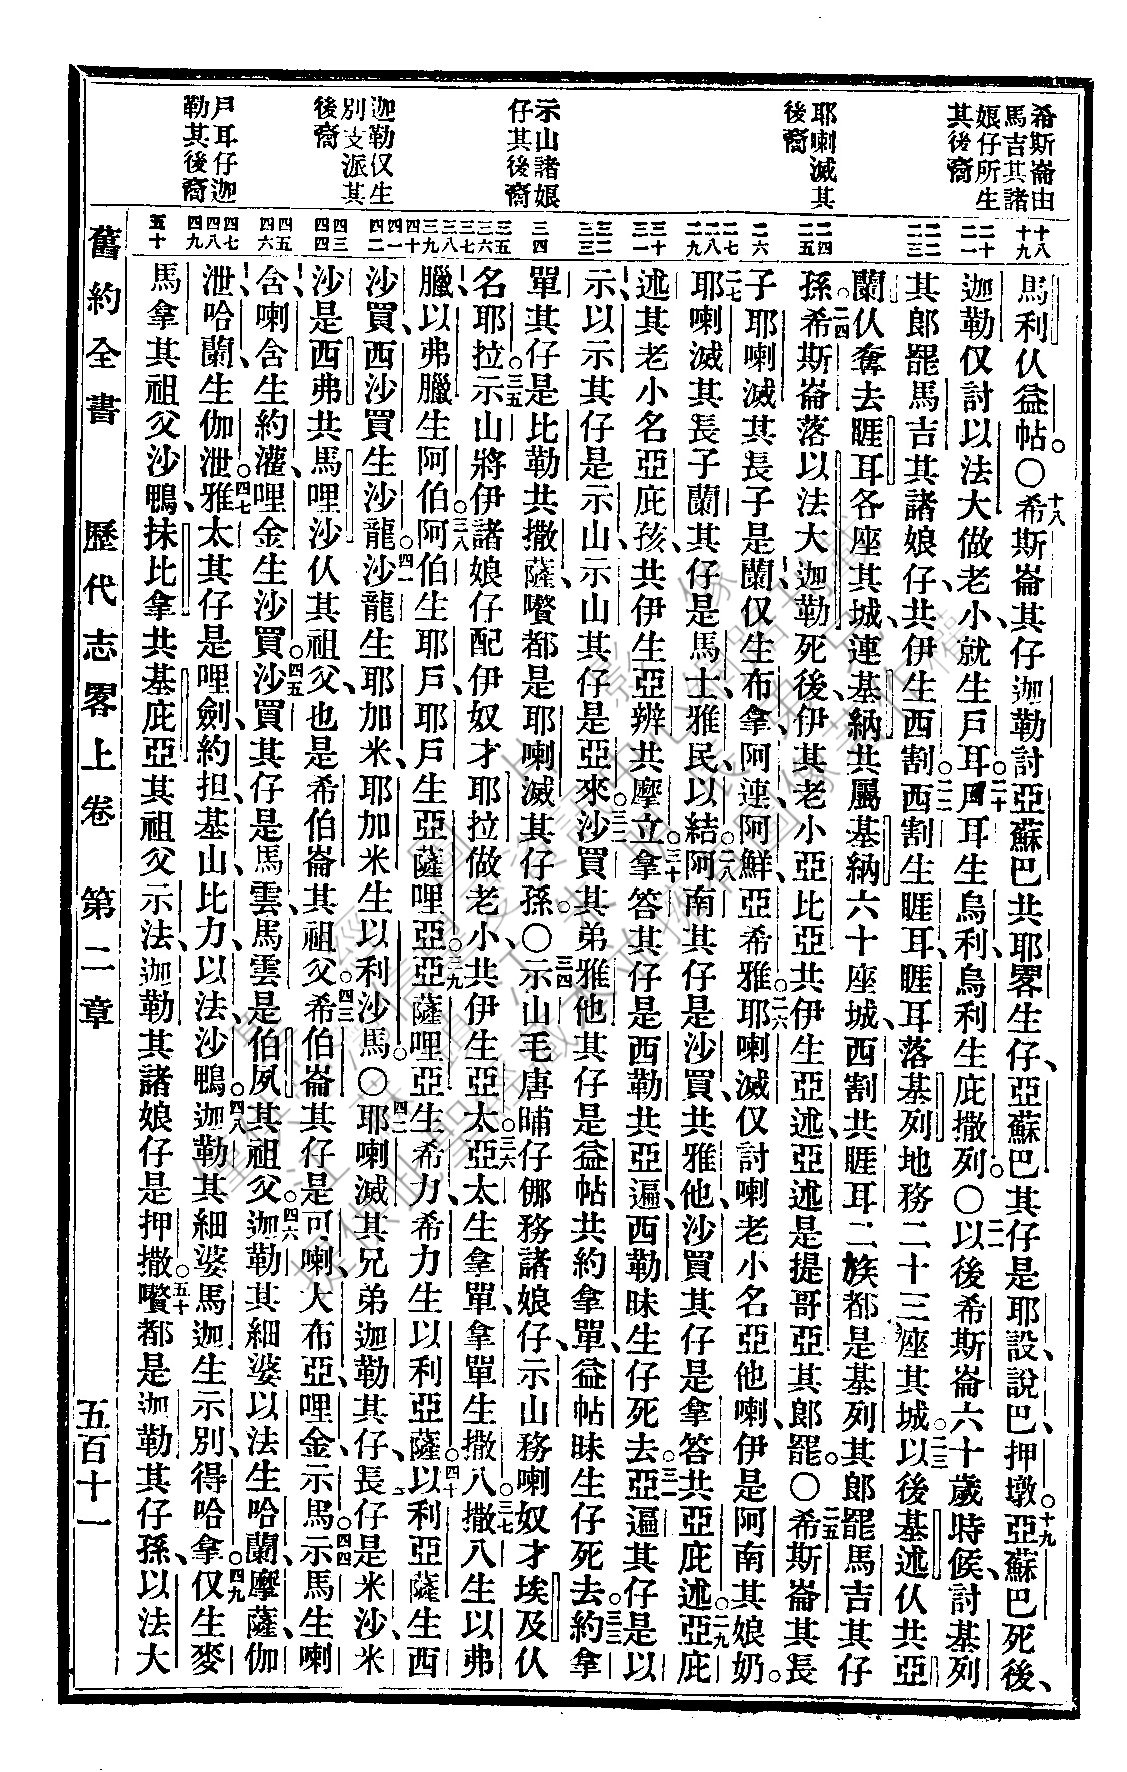 希斯崙由
馬吉其諸
娘仔所生
其後裔
耶喇滅其
後裔
示山諸娘
仔其後裔
迦勒仅生
別支派其
後裔
戶耳仔迦
勒其後裔
十八
十九
二十
二一
二二
二三
二四
二五
二六
二七
二八
二九
三十
三一
三二
三三
三四
三五
三六
三七
三八
三九
四十
四一
四二
四三
四四
四五
四六
四七
四八
四九
五十
馬利仈益帖。○十八希斯崙其仔迦勒討亞蘇巴共耶畧生仔、亞蘇巴其仔是耶設、說巴、押墩。十九亞蘇巴死後、
迦勒仅討以法大做老小就生戶耳。二十戶耳生烏利、烏利生庇撒列。○二一以後希斯崙六十歲時候、討基列
其郎罷馬吉其諸娘仔、共伊生西割。二二西割生睚耳、睚耳落基列地務二十三座其城。二三以後基述仈共亞
蘭仈奪去睚耳各座其城、連基納共屬基納六十座城、西割共睚耳二族都是基列其郎罷馬吉其仔
孫。二四希斯崙落以法大迦勒死後、伊其老小亞比亞共伊生亞述、亞述是提哥亞其郎罷。○二五希斯崙其長
子耶喇滅其長子是蘭、仅生布拿、阿連、阿鮮、亞希雅。二六耶喇滅仅討喇老小名亞他喇、伊是阿南其娘奶。
二七耶喇滅其長子蘭其仔是馬士、雅民、以結。二八阿南其仔是沙買、共雅他、沙買其仔是拿答共亞庇述。二九亞庇
述其老小名亞庇孩、共伊生亞辨共摩立。三十拿答其仔是西勒共亞遍、西勒昧生仔死去。三一亞遍其仔是以
示、以示其仔是示山、示山其仔是亞來。三二沙買其弟雅他其仔是益帖共約拿單、益帖昧生仔死去。三三約拿
單其仔是比勒共撒薩、嚽都是耶喇滅其仔孫。○三四示山毛唐晡仔、㑚務諸娘仔、示山務喇奴才埃及仈
名耶拉。三五示山將伊諸娘仔配伊奴才耶拉做老小、共伊生亞太。三六亞太生拿單、拿單生撒八。三七撒八生以弗
臘、以弗臘生阿伯。三八阿伯生耶戶、耶戶生亞薩哩亞。三九亞薩哩亞生希力、希力生以利亞薩。四十以利亞薩生西
沙買、西沙買生沙龍。四一沙龍生耶加米、耶加米生以利沙馬。○四二耶喇滅其兄弟迦勒其仔、長仔是米沙、米
沙是西弗共馬哩沙仈其祖父、也是希伯崙其祖父。四三希伯崙其仔是可喇、大布亞、哩金、示馬。四四示馬生喇
含、喇含生約灌、哩金生沙買。四五沙買其仔是馬雲、馬雲是伯夙其祖父。四六迦勒其細婆以法生哈蘭、摩薩、伽
泄、哈蘭生伽泄。四七雅太其仔是哩劍、約担、基山、比力、以法、沙鴨。四八迦勒其細婆馬迦生示別、得哈拿。四九仅生麥
馬拿其祖父沙鴨、抹比拿共基庇亞其祖父示法、迦勒其諸娘仔是押撒。五十嚽都是迦勒其仔孫、以法大
舊約全書 歷代志畧上卷 第二章 五百十一